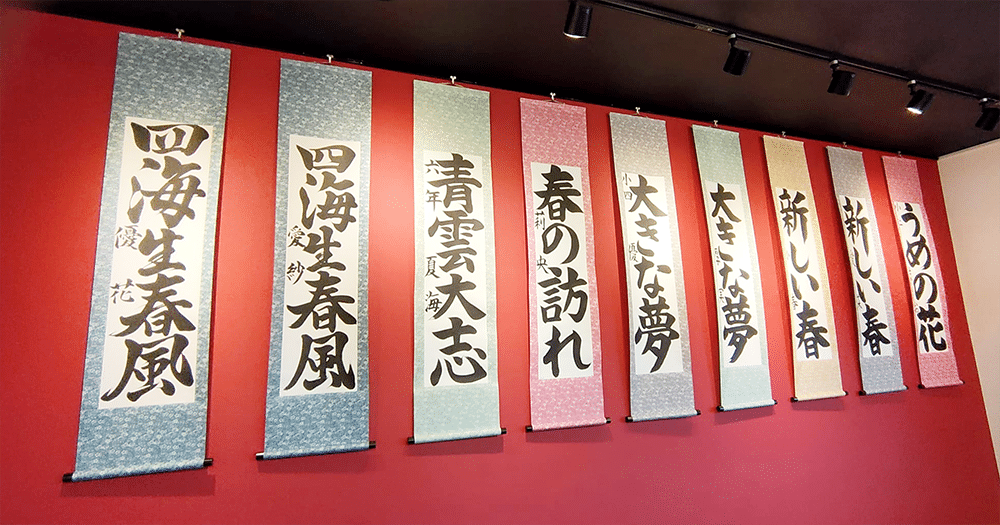 四海生春風
優花
四海生春風
愛紗
青雲大志
六年 夏海
春の訪れ
莉央
大きな夢
小四 優
大きな夢
新しい春
新しい春
うめの花